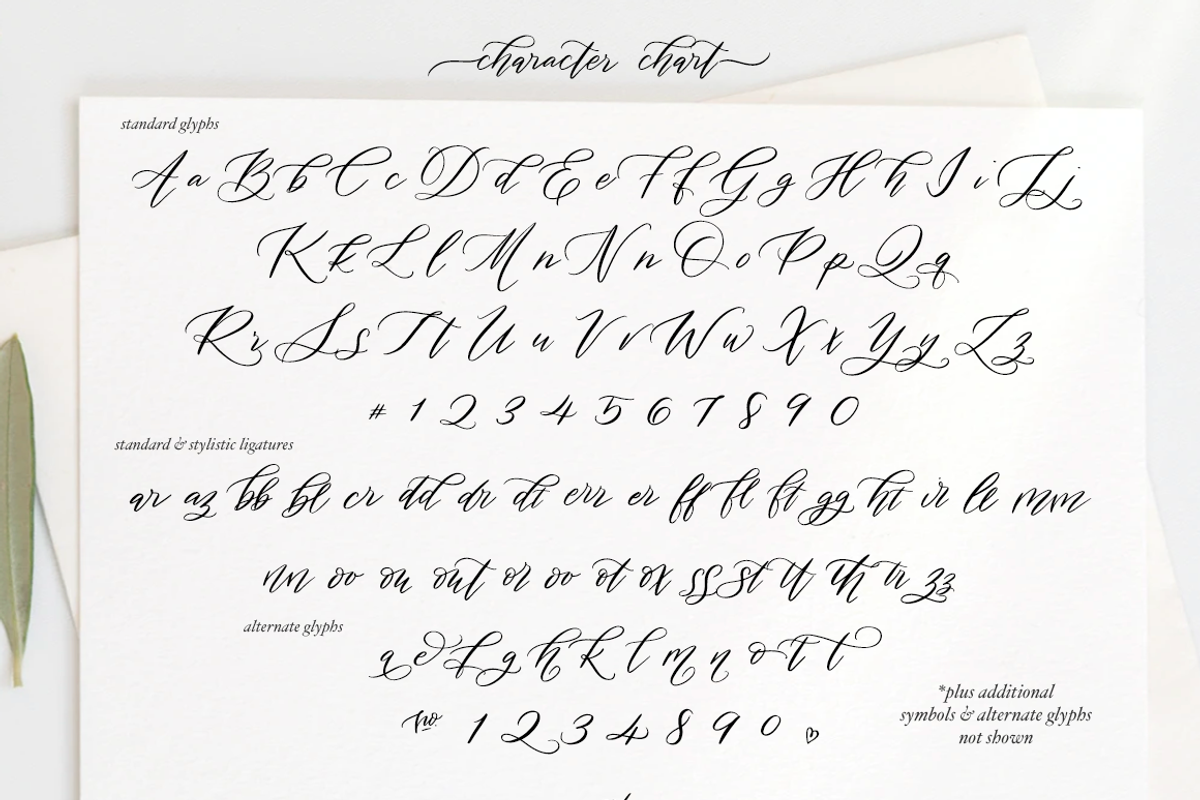 character chart
standard glyphs
A a B b C c D d E e F f G g H h I i J j
K k L l M n N n O o P p Q q
R r S s T t U u V v W w X x Y y Z z
# 1 2 3 4 5 6 7 8 9 0
standard & stylistic ligatures
ar az bb bl cr dd dr dt err er ff fl ft gg ht ir le mm
nn oo ou out or oo ot ox ss st tt th tr zz
alternate glyphs
a d f g h k l m n o t t
no. 1 2 3 4 8 9 0 ♡
*plus additional
symbols & alternate glyphs
not shown